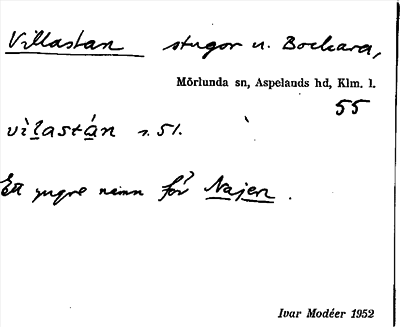 Villastan stugor u. Bockara,
Mörlunda sn, Aspelands hd, Klm. l.
55
vìlastán s. 51.
Ett yngre namn för? Najen.
Ivar Modéer 1952